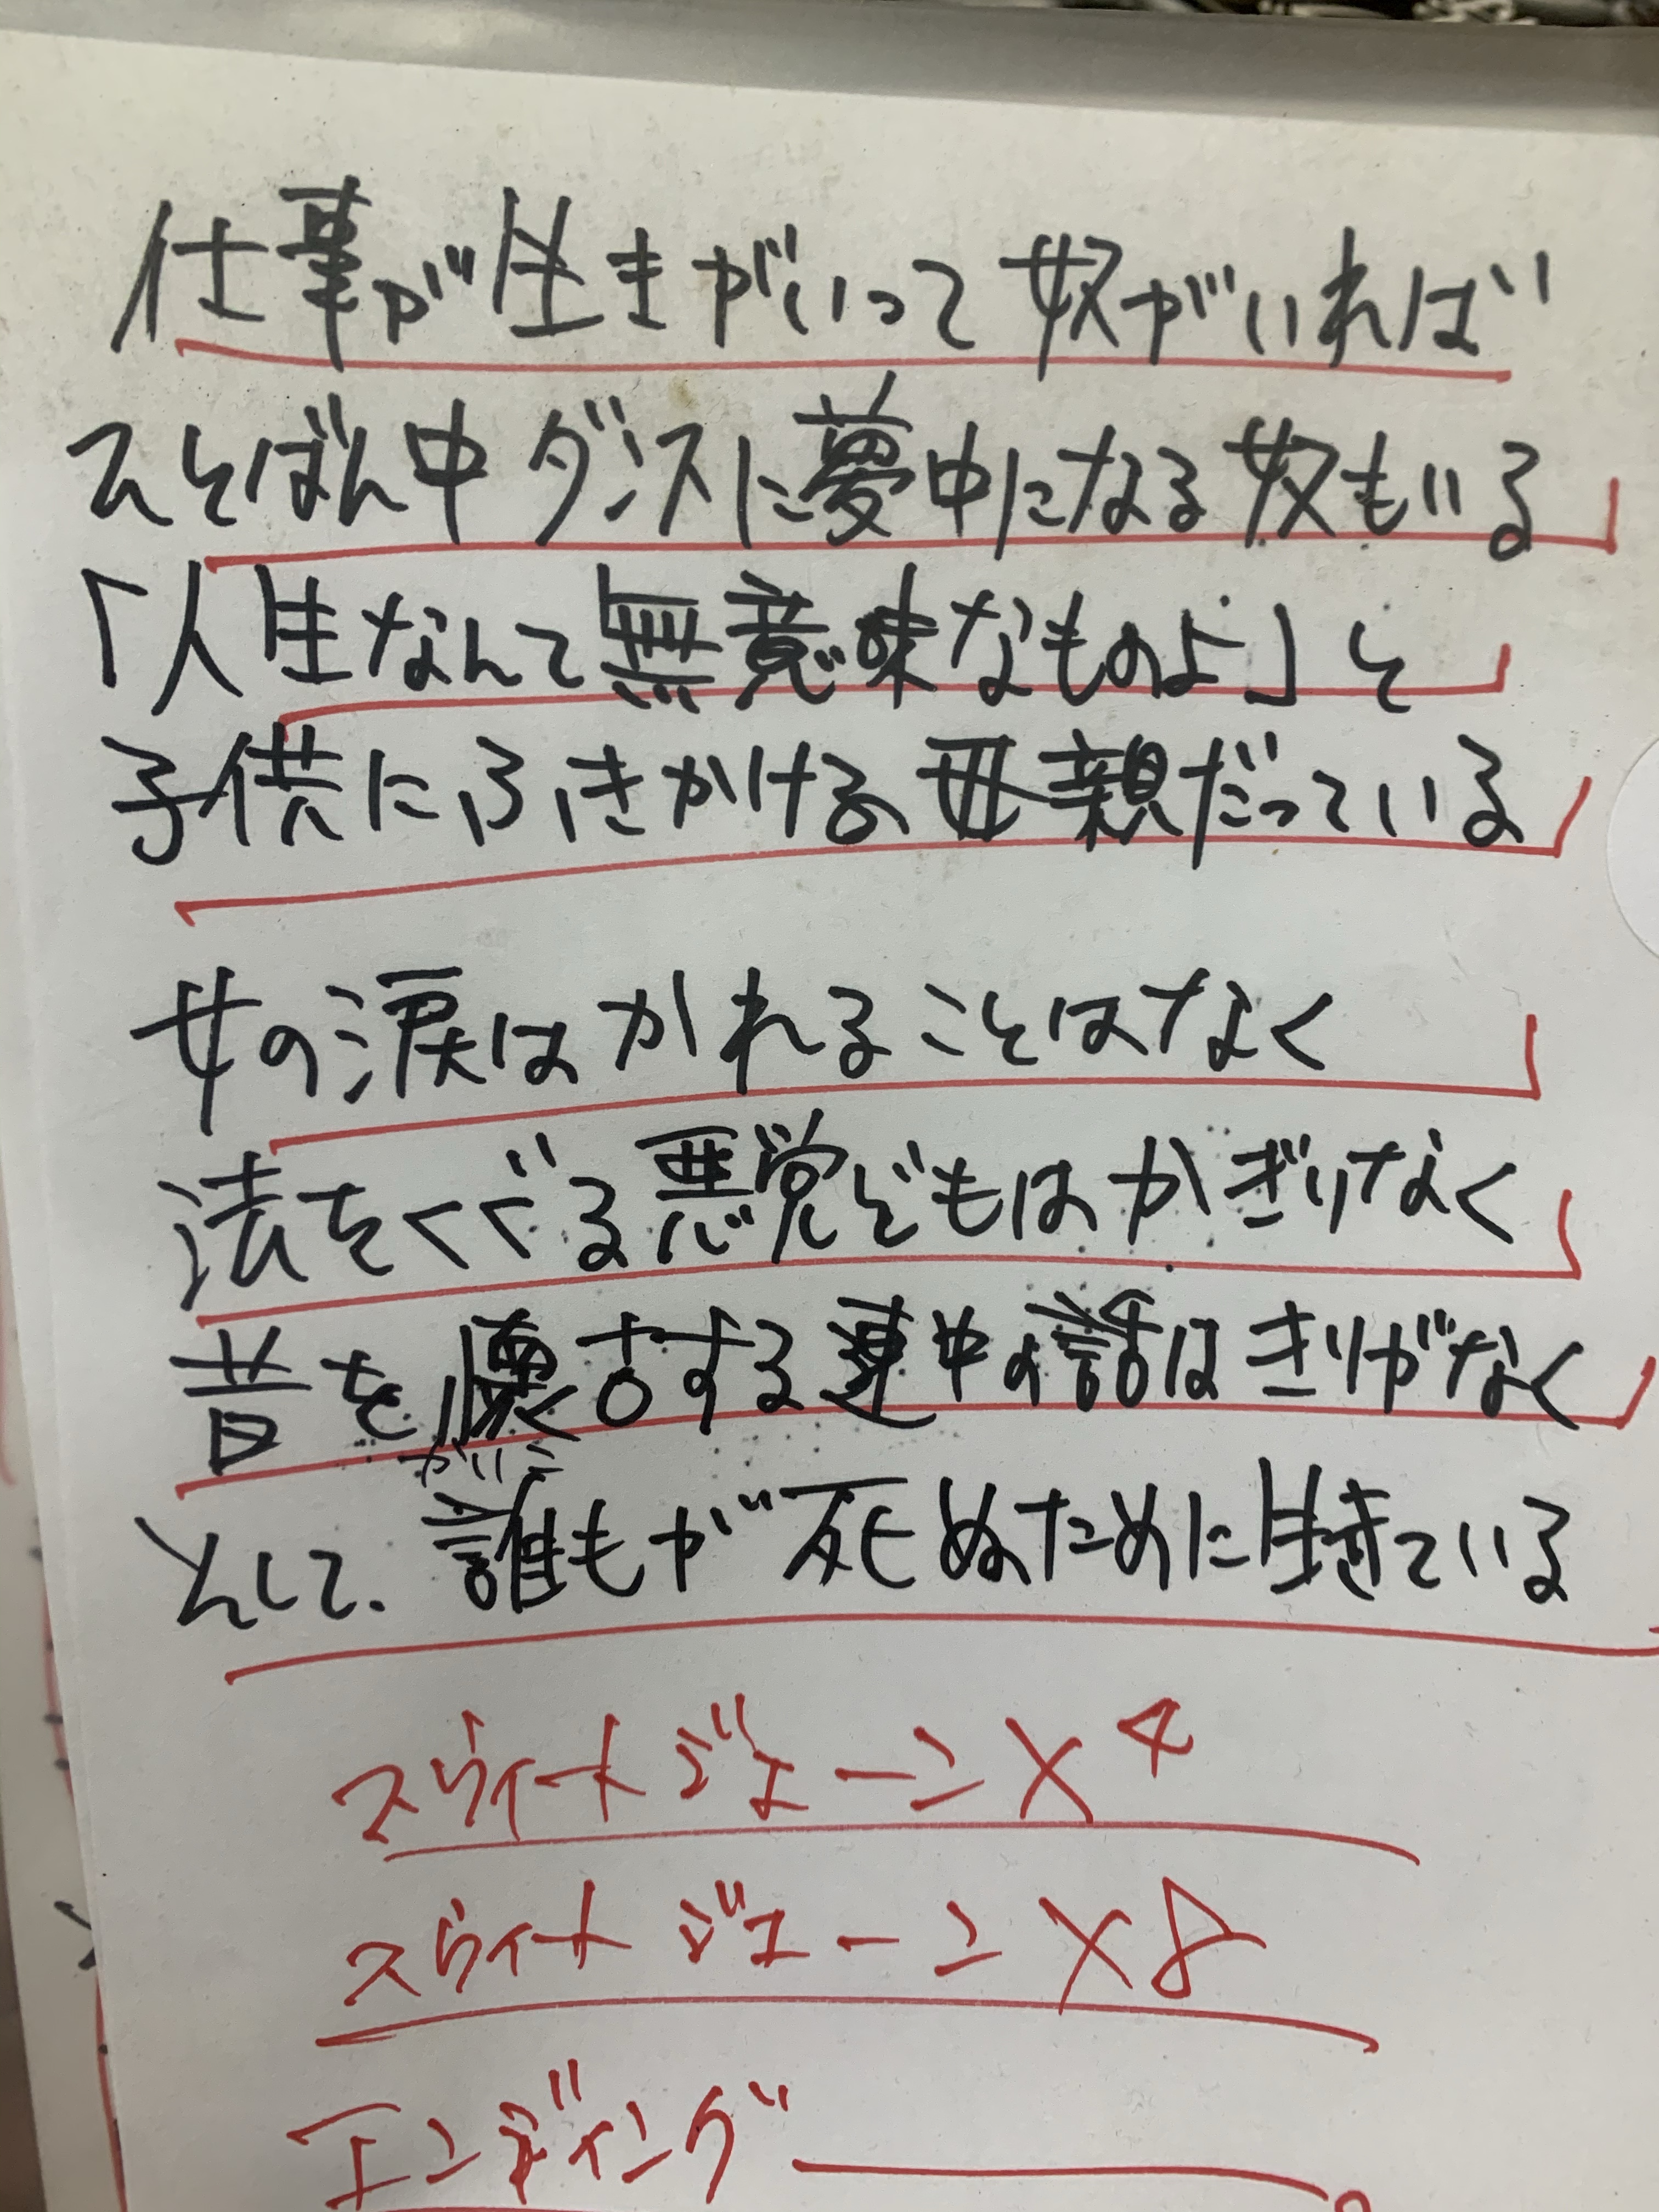 仕事が生きがいって奴がいれば
ひとばん中ダンスに夢中になる奴もいる
「人生なんて無意味なものよ」と
子供にふきかける母親だっている
女の涙はかれることはなく
法をくぐる悪党どもはかぎりなく
昔を懐古する連中の話はきりがなく
かいこ
そして、誰もが死ぬために生きている
スウィートジェーン×4
スウィートジェーン×8
エンディング